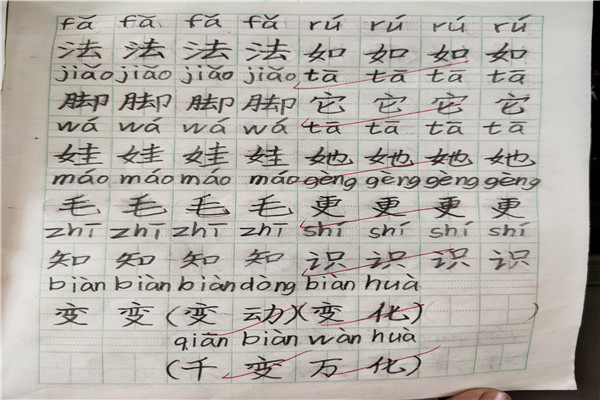 fǎ fǎ fǎ fǎ rú rú rú rú
法 法 法 法 如 如 如 如
jiǎo jiǎo jiǎo jiǎo tā tā tā tā
脚 脚 脚 脚 它 它 它 它
wá wá wá wá tā tā tā tā
娃 娃 娃 娃 她 她 她 她
máo máo máo máo gèng gèng gèng gèng
毛 毛 毛 毛 更 更 更 更
zhī zhī zhī zhī shí shí shí shí
知 知 知 知 识 识 识 识
biàn biàn biàn dòng biàn huà
变 变 (变 动)(变 化) )
qiān biàn wàn huà
(千 变 万 化)